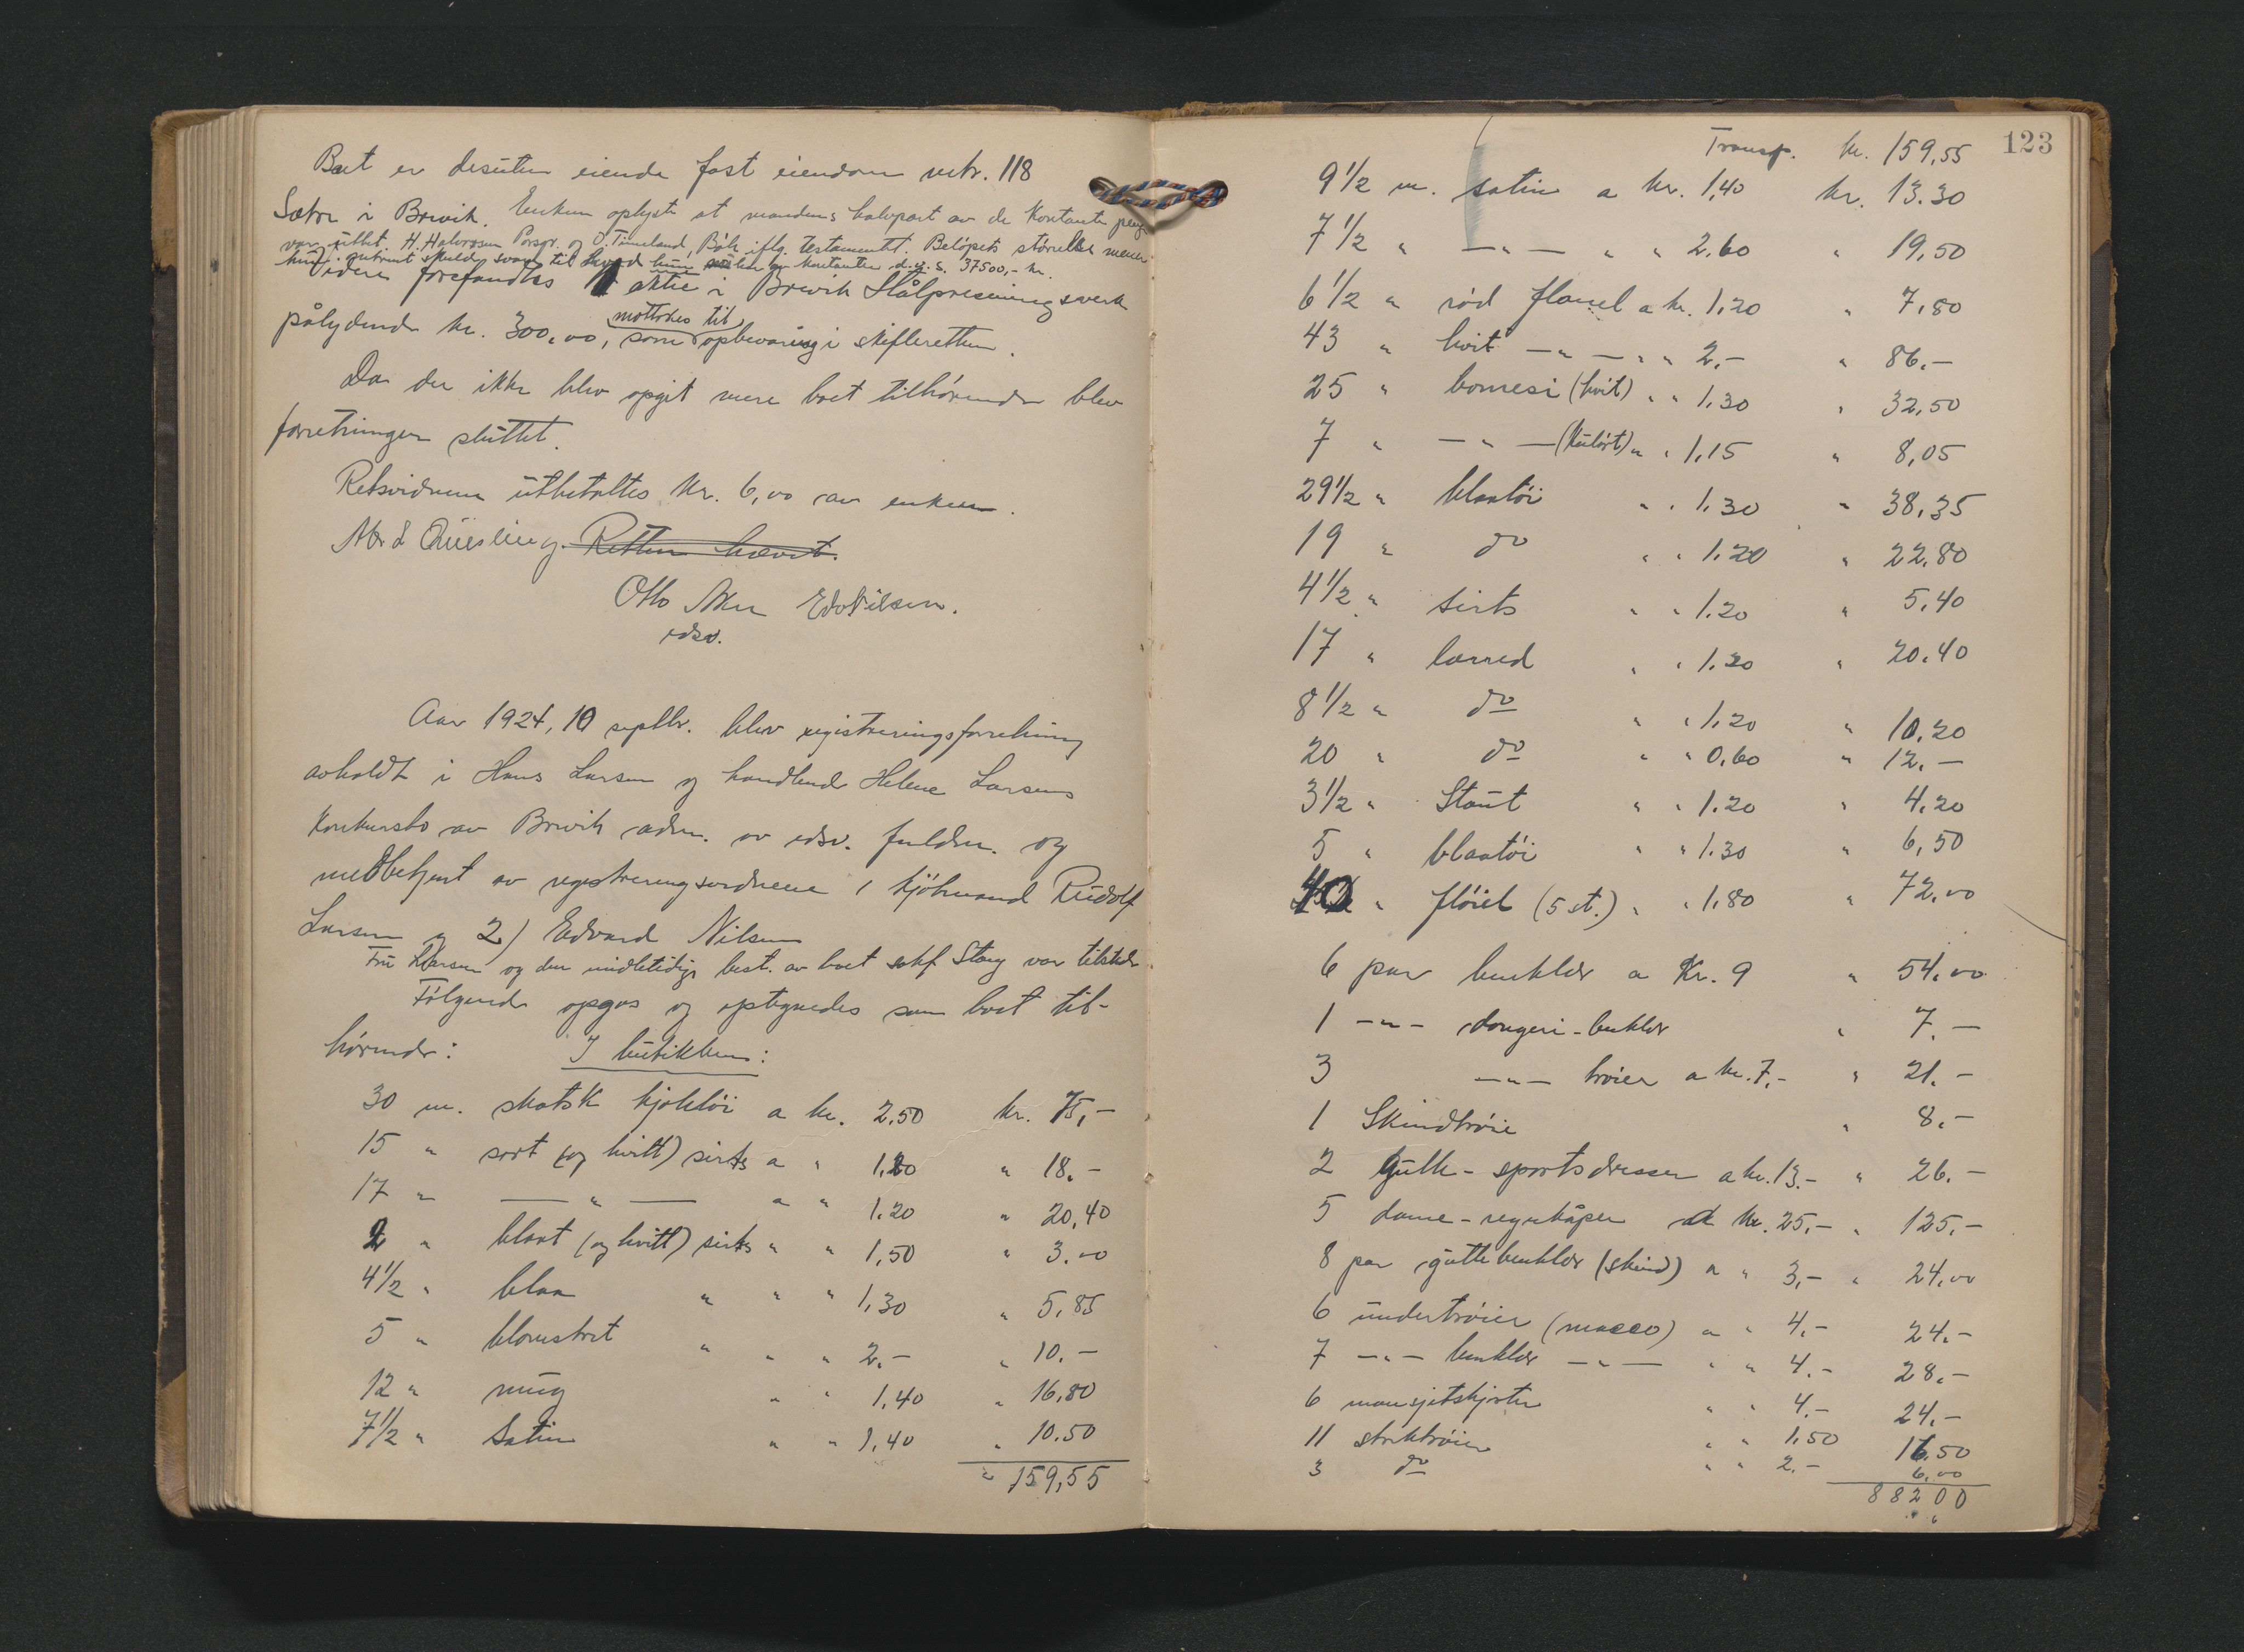 Boet er desuten eiende fast eiendom mtr. 118
Sætre i Brevik. Enken oplyste at mandens halvpart av de kontante penge
var utlet. H. Halvorsen Porsgr. og O. Timeland, Bøle iflg. testamentet. Beløpets størrelse mener
hun. omtrent skulde svare til hvad hun har kontanter d.v.s. 37500,- kr.
Videre forefandtes 1 aktie i Brevik Stålpresningsverk
pålydende kr. 300,00, som mottokes til opbevaring i skifteretten.
Da der ikke blev opgit mere boet tilhørende blev
forretningen sluttet.
Retsvidnene utbetaltes kr. 6,00 av enken.
Retten hævet.
Otto Aken Edv Nilsen.
edsv.
Aar 1924, 10 septbr. blev registreringsforretning
avholdt i Hans Larsen og handlende Helene Larsens
konkursbo av Brevik adm. av edsv. fuldm. og
medbetjent av registreringsvidnene 1 kjøbmand Rudolf
Larsen og 2) Edvard Nilsen
Fru Larsen og den midletidige best. av boet sakf. Stang var tilstede
Følgende opgas og optegnedes som boet til-
hørende: I butikken:
30 m. skotsk kjoletøi a kr. 2,50 kr. 75,-
15 " sort (og hvitt) sirts a " 1,20 " 18.-
17 " — " — a " 1.20 " 20,40
2 " blaat (og hvitt) sirts " " 1,50 " 3.00
4 1/2 " blaa " " " 1,30 " 5,85
5 " blomstret " " " 2.- " 10.-
12 " " " 1,40 " 16,80
7 1/2 " Satin " " 1,40 " 10.50
" 159,55
123
Transp. kr. 159,55
9 1/2 m. satin a kr. 1,40 kr. 13.30
7 1/2 " — " — " " 2,60 " 19,50
6 1/2 " rød flanel a kr. 1,20 " 7,80
43 " hvit — " — " " 2,- " 86.-
25 " bomesi (hvit) " " 1,30 " 32,50
7 " — " — (kulørt) " " 1,15 " 8,05
29 1/2 " blaatøi " " 1.30 " 38,35
19 " do " " 1.20 " 22,80
4 1/2 " sirts " " 1.20 " 5,40
17 " lærred " " 1.20 " 20.40
8 1/2 " do " " 1,20 " 10,20
20 " do " " 0,60 " 12.-
3 1/2 " Stout " " 1.20 " 4.20
5 " blaatøi " " 1.30 " 6,50
40 " fløiel (5 st.) " " 1,80 " 72,00
6 par benklær a Kr. 9 " 54.00
1 — " — dongeri-benklær " 7.-
3 — " — trøier a kr. 7,- " 21.-
1 Skindtrøie " 8.-
2 Gutte-sportsdresser a kr. 13.- " 26.-
5 dame-regnkåper a kr. 25,- " 125.-
8 par guttebenklær (skind) a " 3,- " 24,00
6 undertrøier (macco) a " 4.- 24.-
7 — " — benklær — " — " " 4.- 28.-
6 mansjetskjorter " " 4.- 24.-
11 strikktrøier " " 1,50 16.50
3 do " " 2.- 6,00
882 00